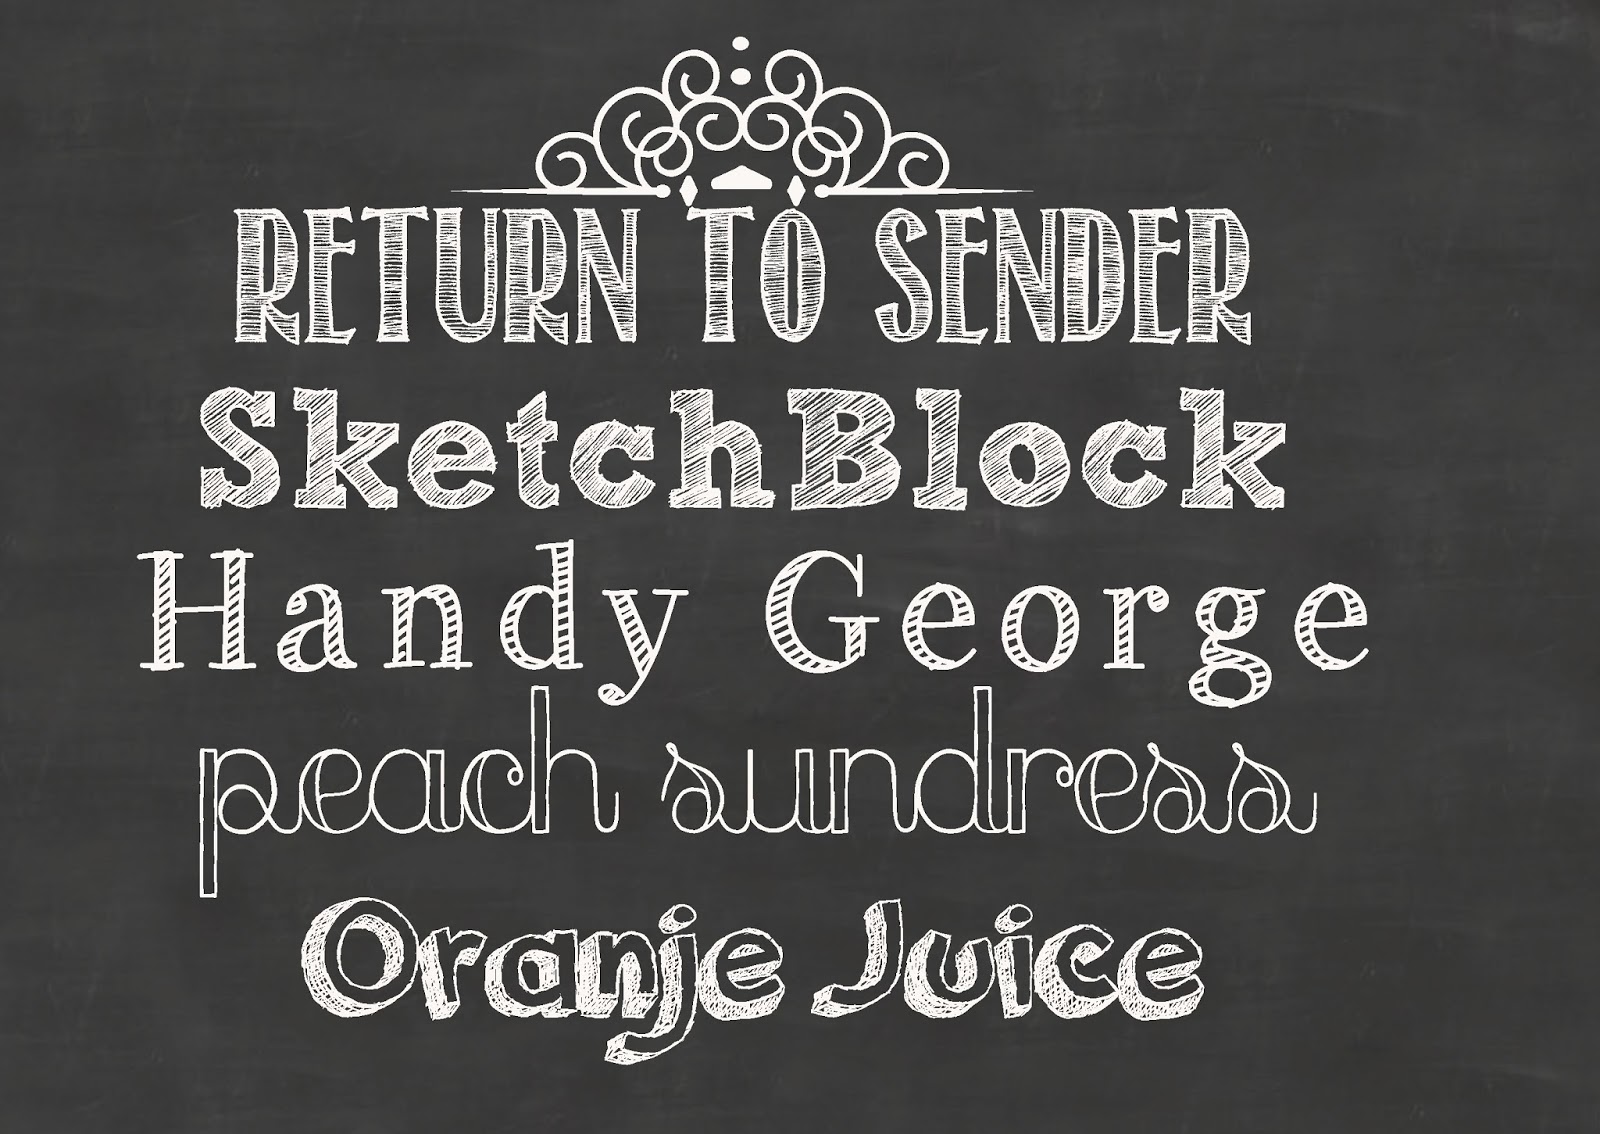 RETURN TO SENDER
SketchBlock
Handy George
peach sundress
Oranje Juice